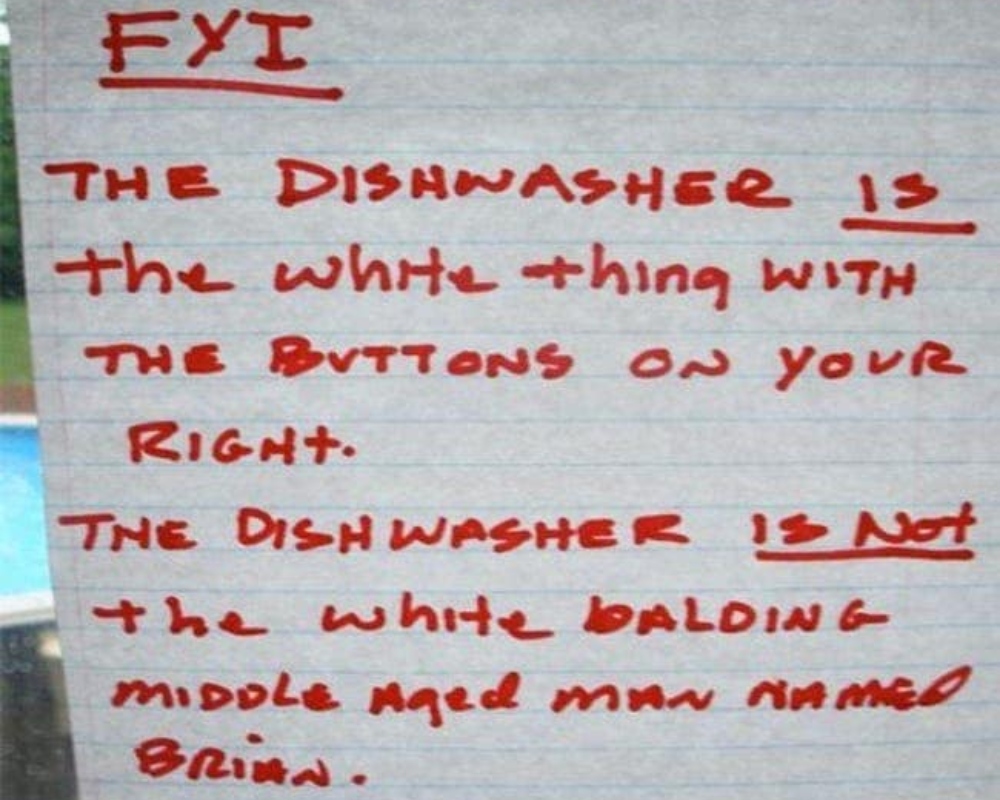 FYI
THE DISHWASHER IS
the white thing WITH
THE BUTTONS ON YOUR
RIGHt.
THE DISHWASHER IS Not
the white bALDING
MIDDLE Aged MAN NAMED
BRiAN.